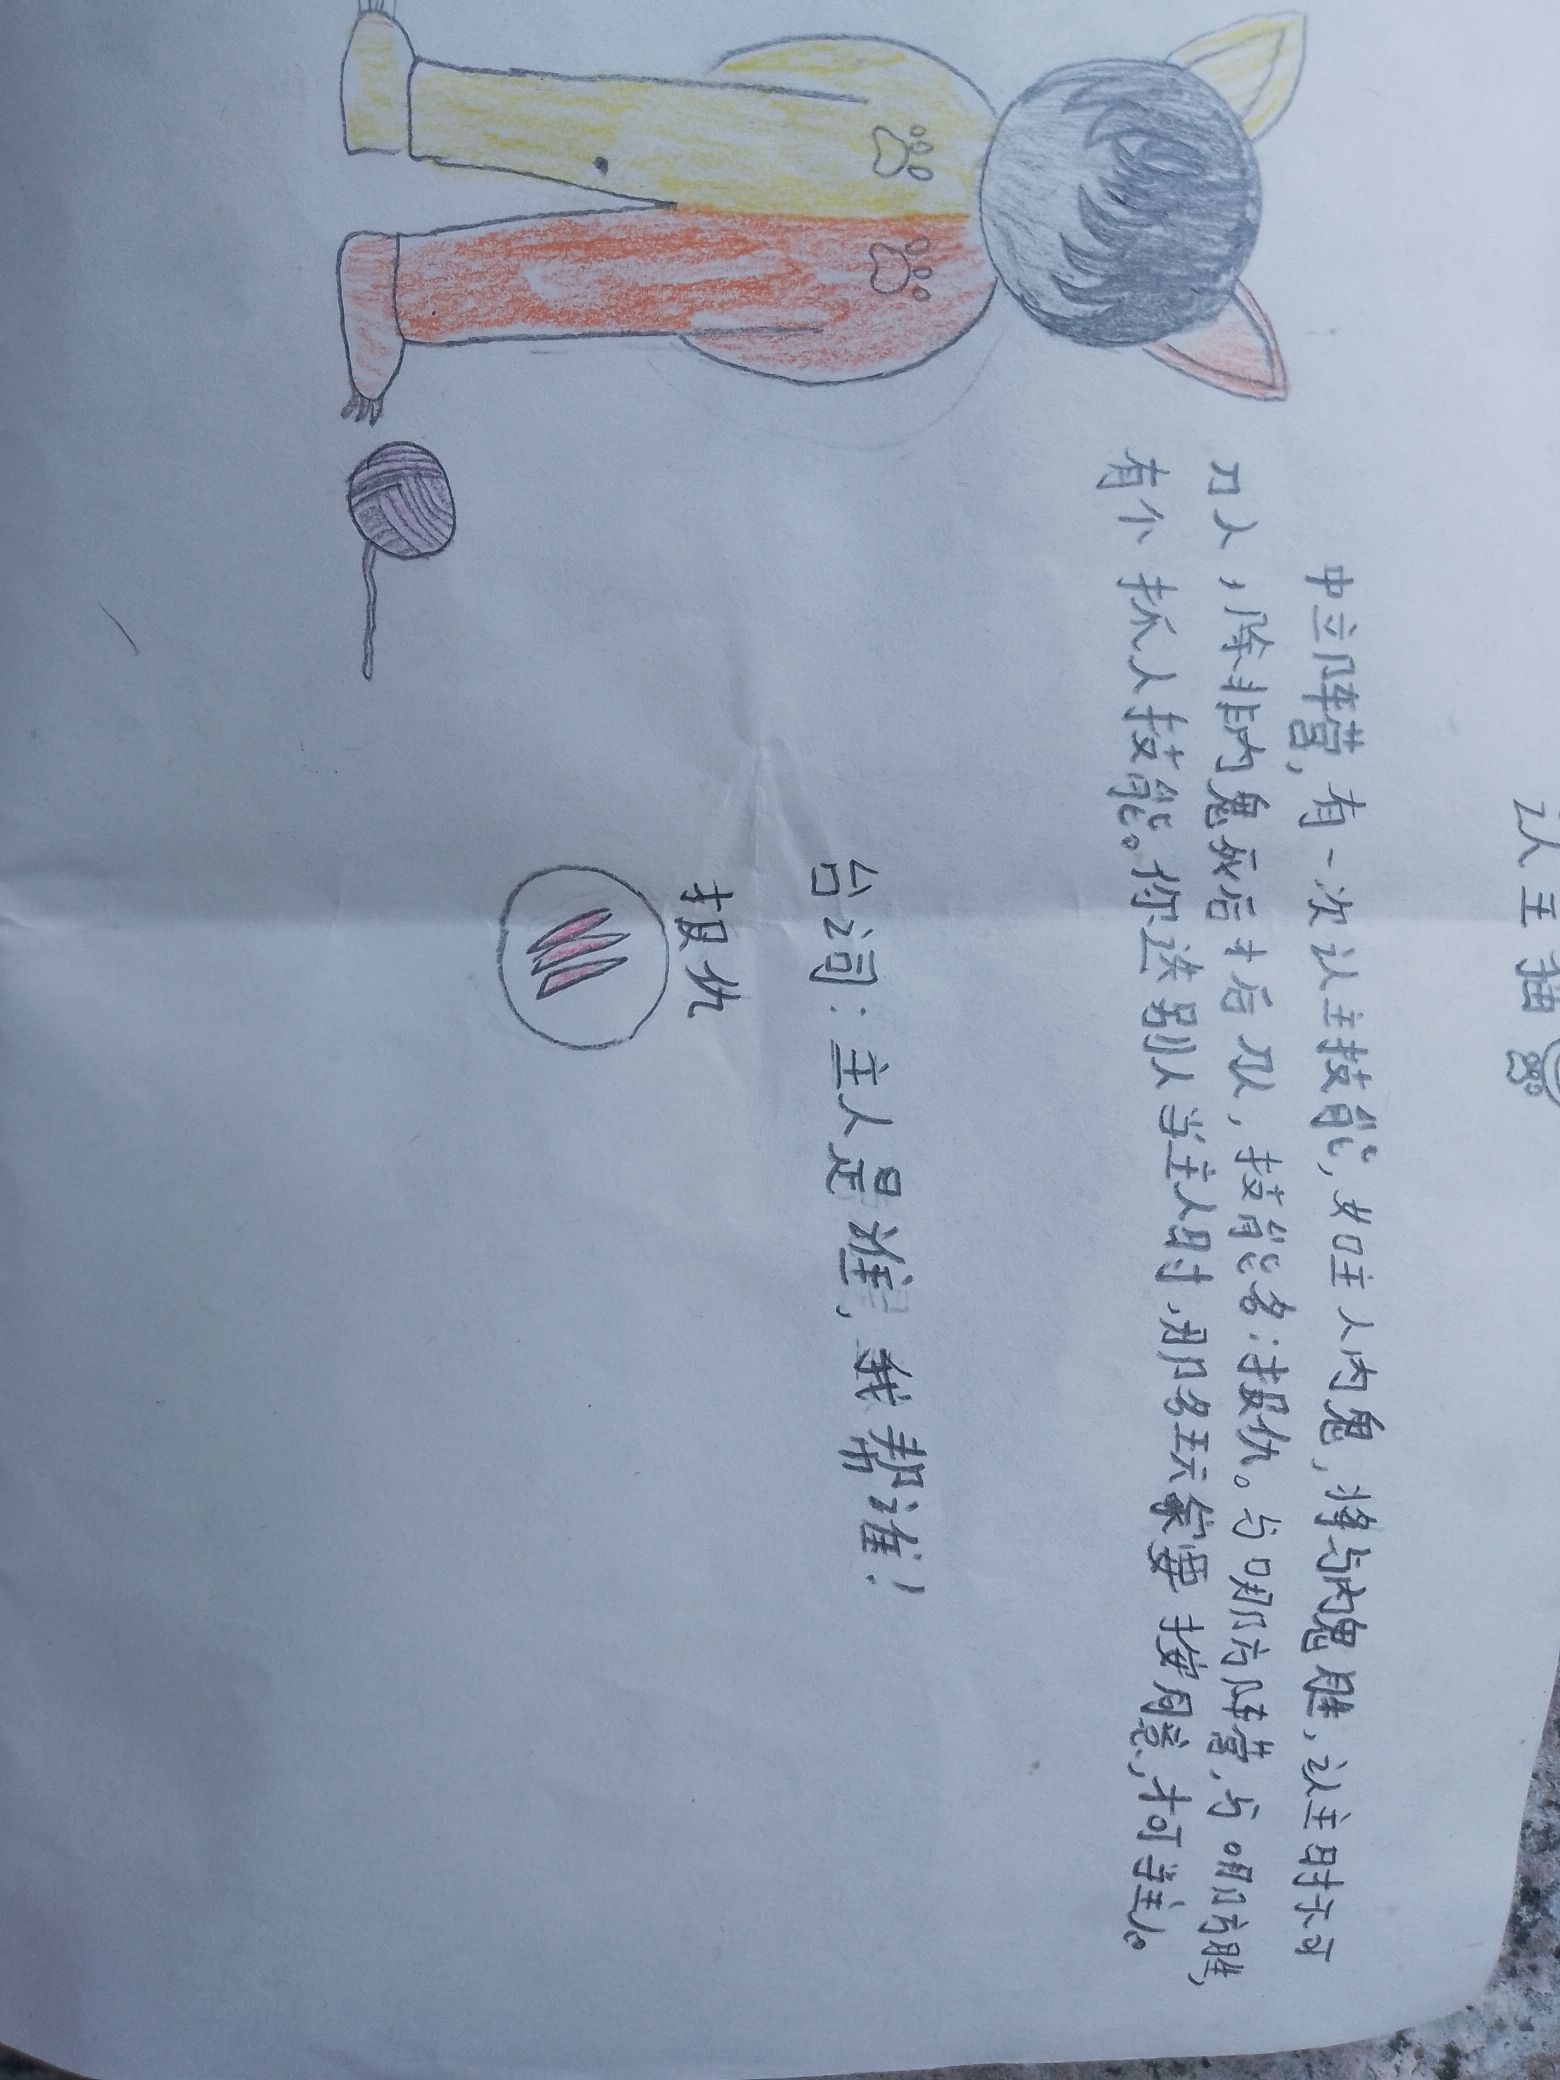 认主猫
中立阵营,有一次认主技能,如主人内鬼,将与内鬼胜,认主时不可
刀人,除非内鬼死后才后刀人,技能名:报仇。与哪方阵营,与哪方胜,
有个抓人技能。你选别人当主人时,那名玩家要按同意,才可当主人。
台词:主人是谁,我帮谁!
报仇